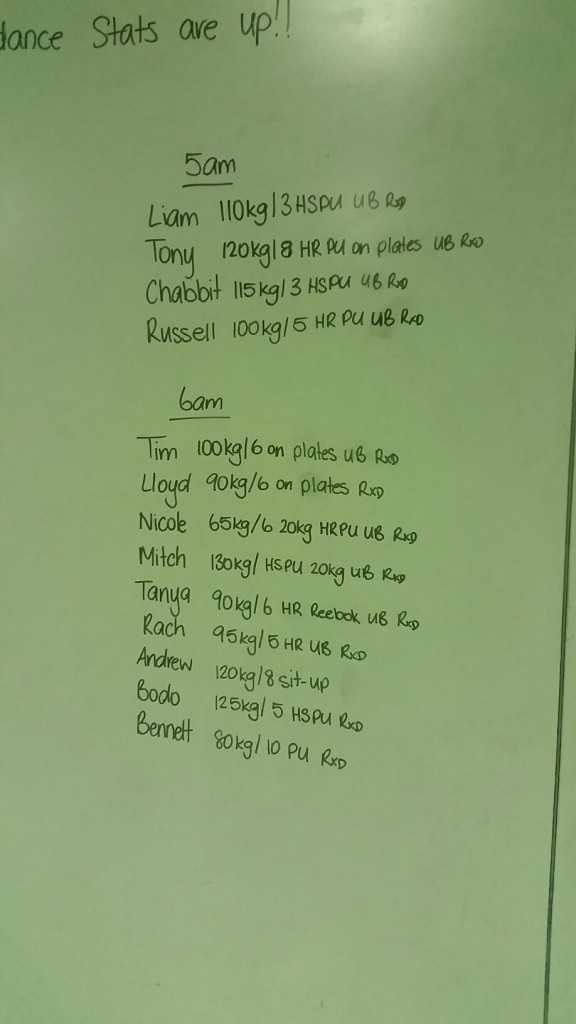 dance Stats are up!!
5am
Liam 110kg/3 HSPU UB RxD
Tony 120kg/8 HR PU on plates UB RxD
Chabbit 115kg/3 HSPU UB RxD
Russell 100kg/5 HR PU UB RxD
6am
Tim 100kg/6 on plates UB RxD
Lloyd 90kg/6 on plates RxD
Nicole 65kg/6 20kg HRPU UB RxD
Mitch 130kg/ HSPU 20kg UB RxD
Tanya 90kg/6 HR Reebok UB RxD
Rach 95kg/5 HR UB RxD
Andrew 120kg/8 sit-up
Bodo 125kg/5 HSPU RxD
Bennett 80kg/10 PU RxD